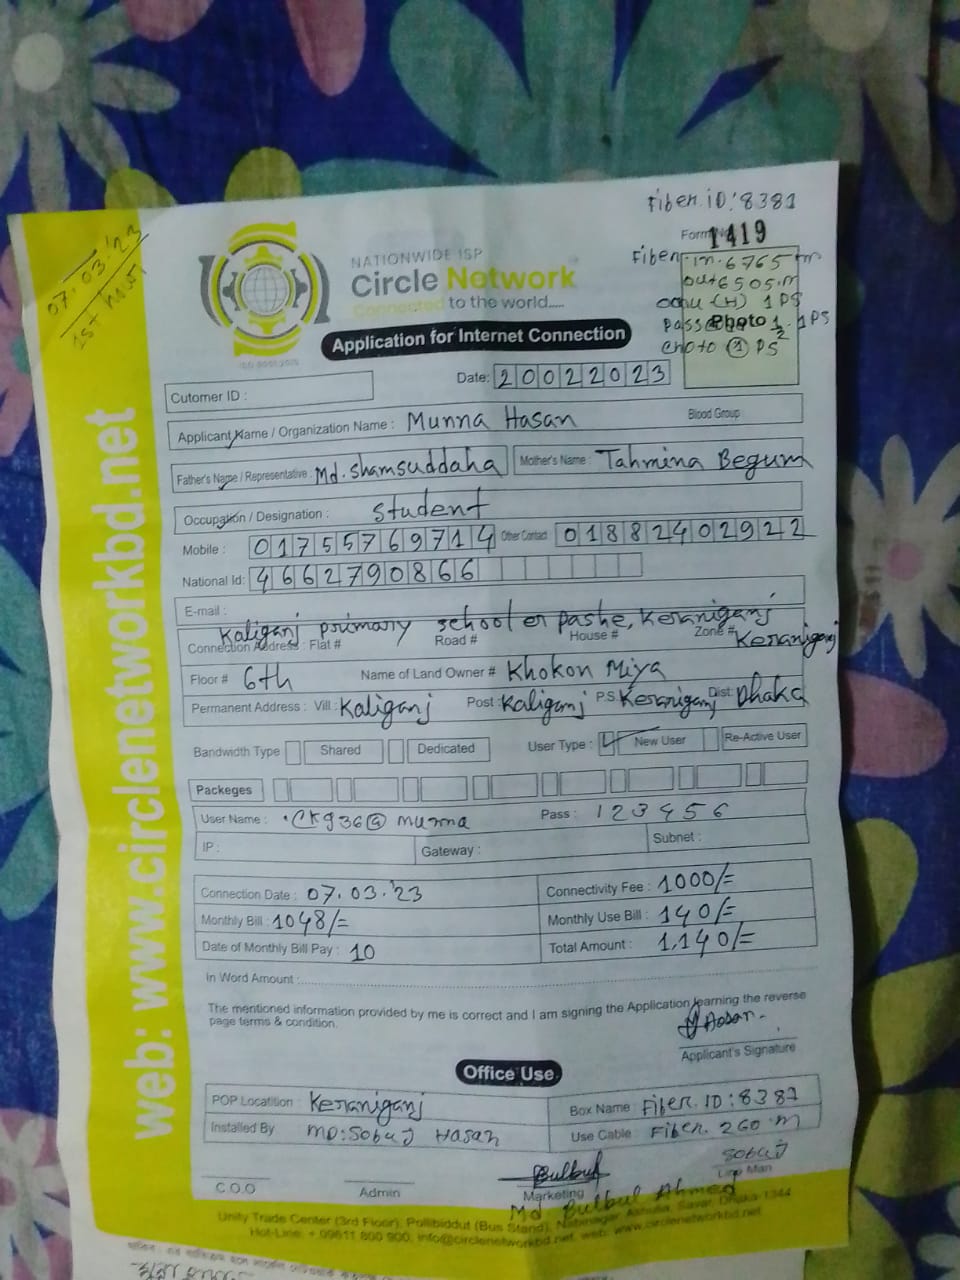 Fiber.iD:8381
Form No 1419
07.03.'23
NATIONWIDE ISP
Circle Network
Connected to the world.....
ISO 9001:2015
Fiber in.6765 m
out 6505.m
onu-(H) 1PS
Photo
choto ① PS
Application for Internet Connection
Date: 20022023
Cutomer ID :
Applicant Name / Organization Name : Munna Hasan Blood Group
Father's Name / Representative : Md. Shamsuddaha Mother's Name : Tahmina Begum
Occupation / Designation : Student
Mobile : 01755769714 Other Contact 01882402922
National Id: 4662790866
E-mail :
Kaliganj primary school er pashe, Keraniganj
Connection Address : Flat # Road # House # Zone # Keraniganj
Floor # 6th Name of Land Owner # Khokon Miya
Permanent Address : Vill : Kaliganj Post : Kaliganj P.S Keraniganj Dist: Dhaka
Bandwidth Type Shared Dedicated User Type : New User Re-Active User
Packeges
User Name : ckg36@munna Pass : 123456
IP : Gateway : Subnet :
Connection Date : 07.03.'23 Connectivity Fee : 1000/=
Monthly Bill : 1048/= Monthly Use Bill : 140/=
Date of Monthly Bill Pay : 10 Total Amount : 1,140/=
In Word Amount :
The mentioned information provided by me is correct and I am signing the Application learning the reverse
page terms & condition.
Hasan
Applicant's Signature
Office Use
POP Locatition : Keraniganj Box Name : Fiber.ID:8381
Installed By MD:Sobuj Hasan Use Cable : Fiber. 260 m
Bulbul Sobuj
C.O.O Admin Marketing Line Man
Md Bulbul Ahmed
Unity Trade Center (3rd Floor), Pollibiddut (Bus Stand), Nabinagar, Ashulia, Savar, Dhaka-1344
Hot-Line: + 09611 800 900, info@circlenetworkbd.net, web: www.circlenetworkbd.net
web: www.circlenetworkbd.net